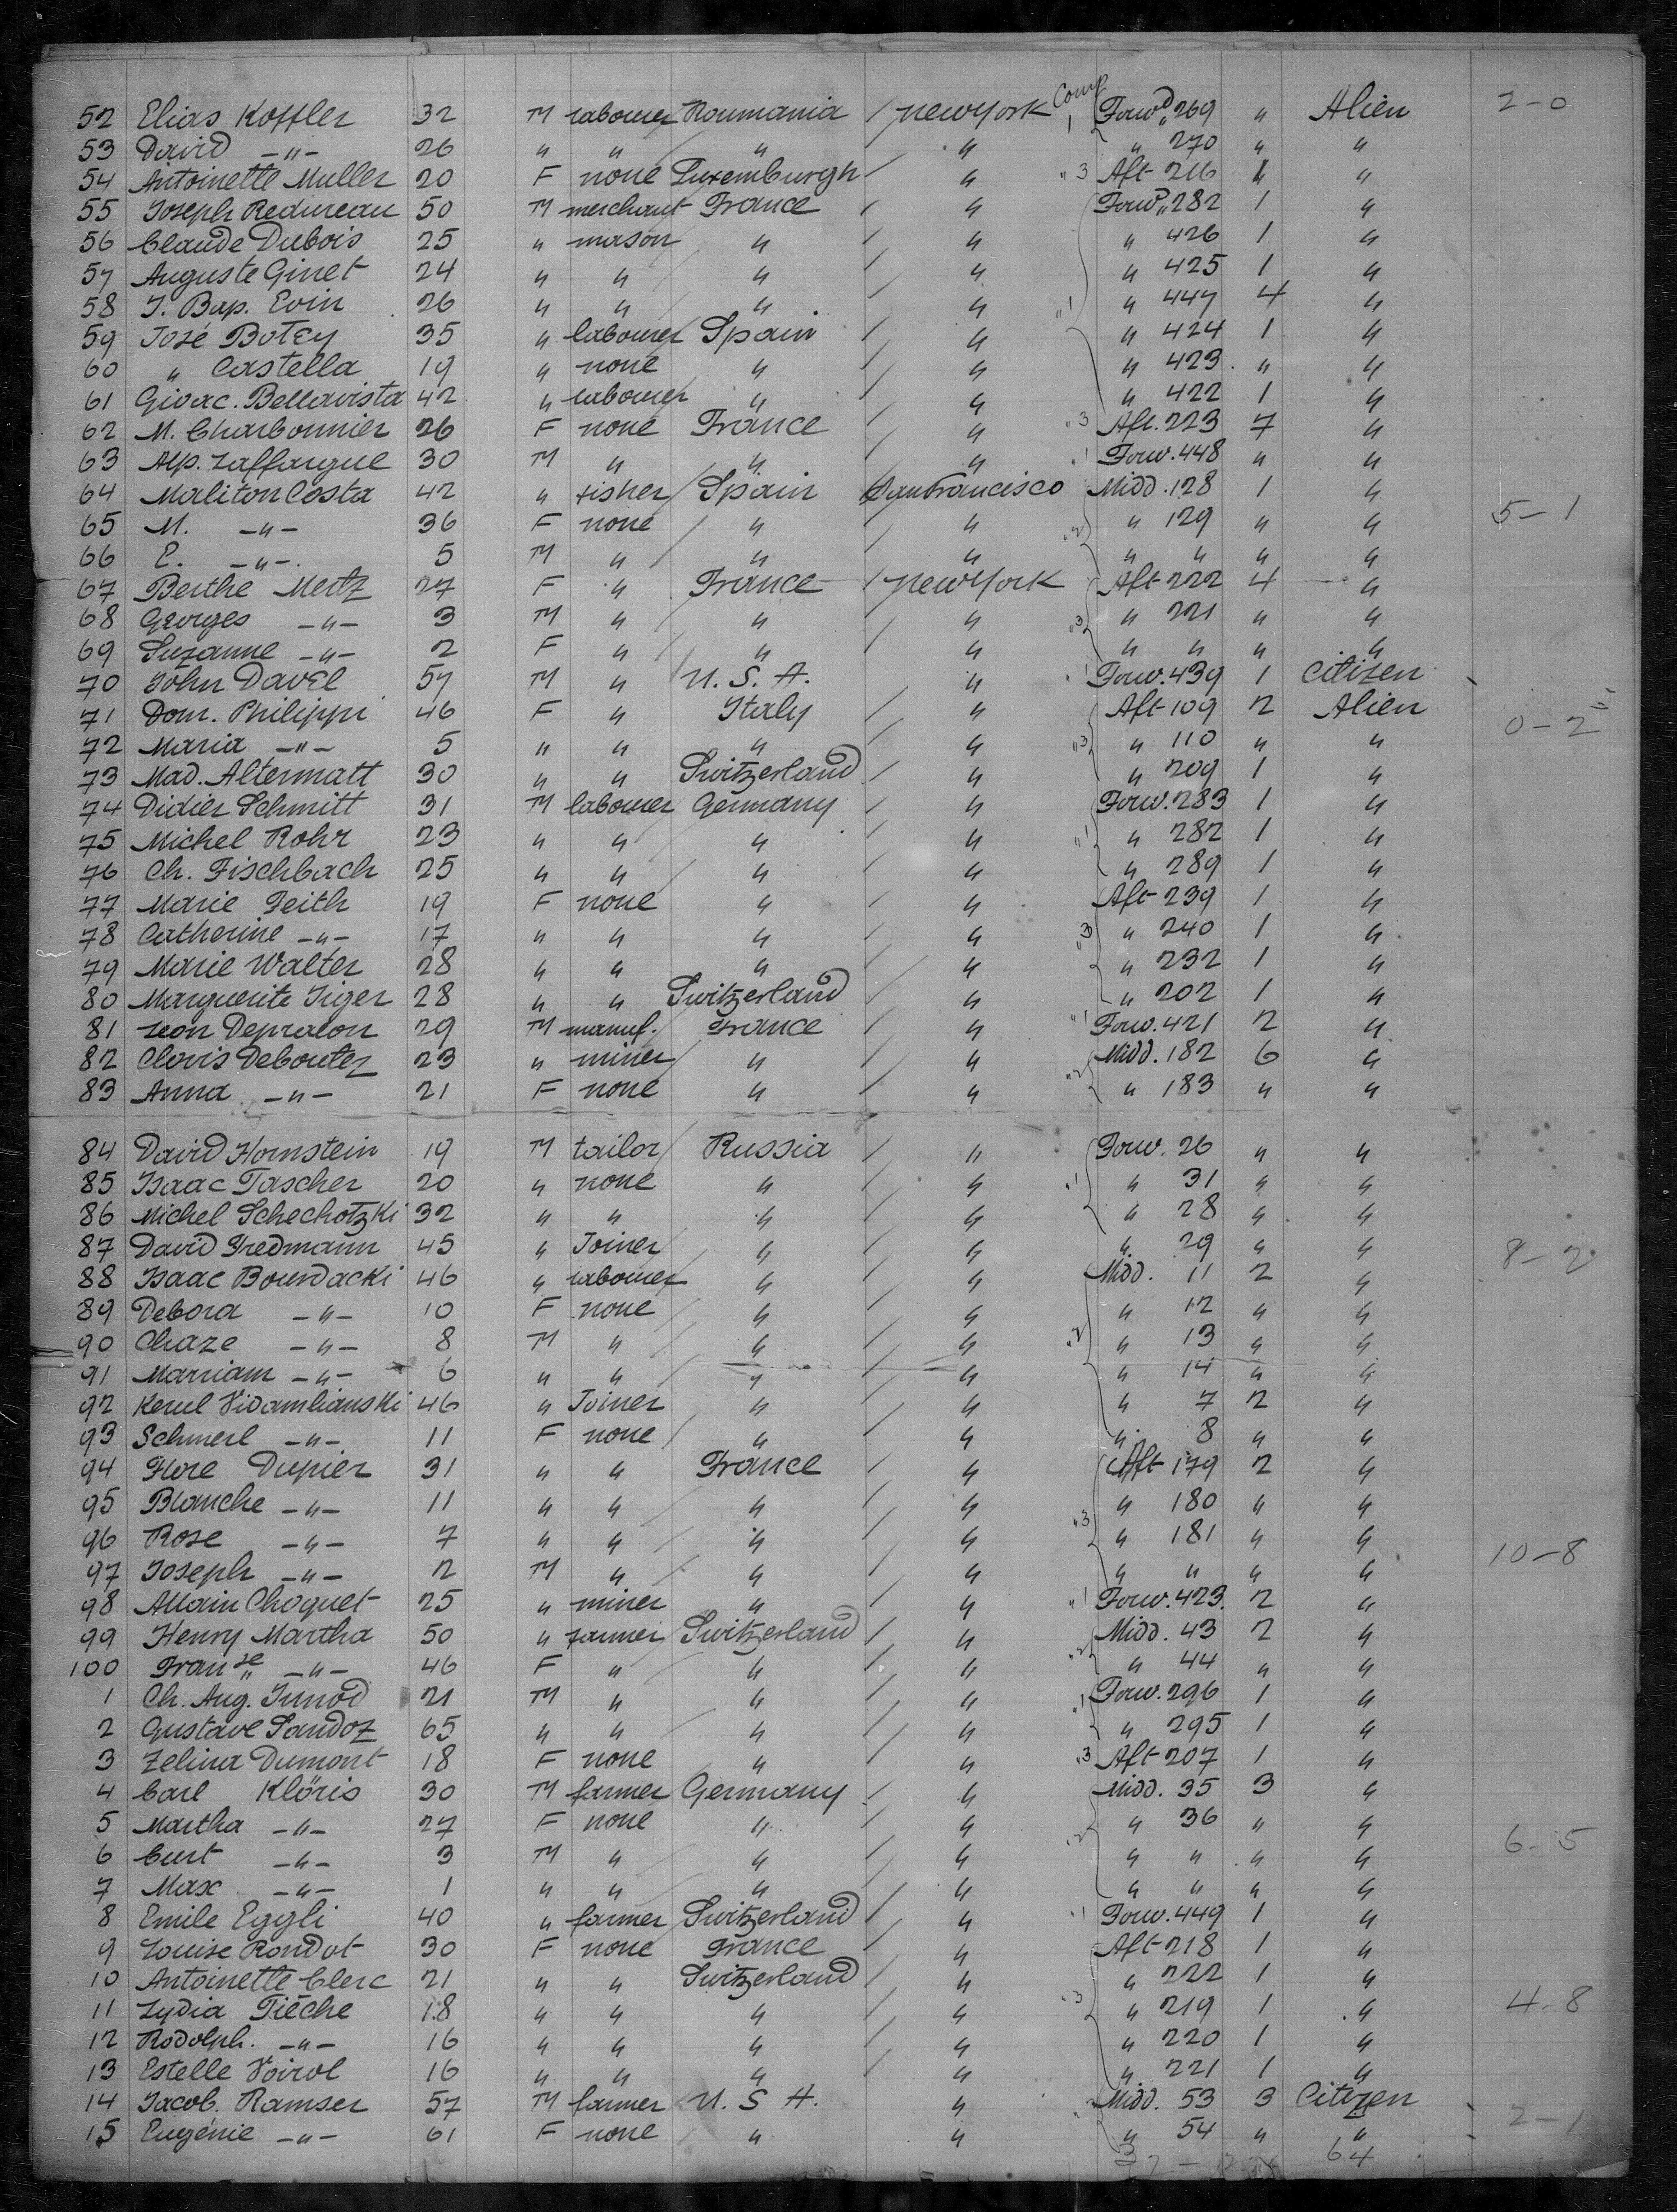 52 Elias Koffler 32 M labourer Roumania / New York Comp 1 Forwd 269 " Alien 2-0
53 David -"- 26 " " " " " 270 " "
54 Antoinette Muller 20 F none Luxemburgh / " "3 Aft 216 " "
55 Joseph Redureau 50 M merchant France / " Forwd 282 1 "
56 Claude Dubois 25 " mason " / " " 426 1 "
57 Auguste Ginet 24 " " " / " " 425 1 "
58 J. Bap. Evin 26 " " " / " "1 " 447 4 "
59 José Botey 35 " labourer Spain / " " 424 1 "
60 " Castella 19 " none " / " " 423 " "
61 Givac. Bellavista 42 " labourer " / " " 422 1 "
62 M. Charbonnier 26 F none France / " "3 Aft. 223 7 "
63 Alp. Laffargue 30 M " " / " "1 Forw. 448 " "
64 Maliton Costa 42 " fisher Spain San Francisco Midd. 128 1 "
65 M. -"- 36 F none " / " "2 " 129 " " 5-1
66 E. -"- 5 M " " / " " " " "
67 Berthe Mertz 27 F " France / New York Aft 222 4 "
68 Georges -"- 3 M " " " "3 " 221 " "
69 Suzanne -"- 2 F " " / " " " " "
70 John Davel 57 M " U.S.A. " "1 Forw. 439 1 Citizen
71 Dom. Philippi 46 F " Italy / " Aft 109 2 Alien 0-2
72 Maria -"- 5 " " " / " "3 " 110 " "
73 Mad. Altermatt 30 " " Switzerland / " " 209 1 "
74 Didier Schmitt 31 M labourer Germany / " Forw. 283 1 "
75 Michel Rohr 23 " " " / " "1 " 282 1 "
76 Ch. Fischbach 25 " " " / " " 289 1 "
77 Marie Feith 19 F none " / " Aft 239 1 "
78 Catherine -"- 17 " " " / " "3 " 240 1 "
79 Marie Walter 28 " " " / " " 232 1 "
80 Marguerite Jiger 28 " " Switzerland / " " 202 1 "
81 Leon Depralon 29 M manuf. France / " "1 Forw. 421 2 "
82 Clovis Deboutez 23 " miner " / " "2 Midd. 182 6 "
83 Anna -"- 21 F none " / " " 183 " "
84 David Hornstein 19 M tailor Russia / " Forw. 26 " "
85 Isaac Tascher 20 " none " / " "1 " 31 " "
86 Michel Schechotzki 32 " " " / " " 28 " "
87 David Fredmann 45 " Joiner " / " " 29 " " 8-2
88 Isaac Bourdacki 46 " labourer " / " Midd. 11 2 "
89 Debora -"- 10 F none " / " " 12 " "
90 Chaze -"- 8 M " " / " "2 " 13 " "
91 Marriam -"- 6 " " " / " " 14 " "
92 Kerul Vidamlianski 46 " Joiner " / " " 7 2 "
93 Schmerl -"- 11 F none " / " " 8 " "
94 Flore Dupier 31 " " France / " Aft 179 2 "
95 Blanche -"- 11 " " " / " " 180 " "
96 Rose -"- 7 " " " / " "3 " 181 " "
97 Joseph -"- 2 M " " / " " " " " 10-8
98 Allain Choquet 25 " miner " / " "1 Forw. 423 2 "
99 Henry Martha 50 " farmer Switzerland / " "2 Midd. 43 2 "
100 Franse -"- 46 F " " / " " 44 " "
1 Ch. Aug. Junod 21 M " " / " "1 Forw. 296 1 "
2 Gustave Sandoz 65 " " " / " " 295 1 "
3 Zelina Dumont 18 F none " / " "3 Aft 207 1 "
4 Carl Klöris 30 M farmer Germany / " Midd. 35 3 "
5 Martha -"- 27 F none " " "2 " 36 " "
6 Curt -"- 3 M " " / " " " " " 6-5
7 Max -"- 1 " " " / " " " " "
8 Emile Eggli 40 " farmer Switzerland / " "1 Forw. 449 1 "
9 Louise Rondot 30 F none France " Aft 218 1 "
10 Antoinette Clerc 21 " " Switzerland / " " 222 1 "
11 Lydia Tièche 18 " " " / " "3 " 219 1 " 4-8
12 Rodolph. -"- 16 " " " / " " 220 1 "
13 Estelle Voirol 16 " " " / " " 221 1 "
14 Jacob. Ramser 57 M farmer U. S A. " Midd. 53 3 Citizen
15 Eugénie -"- 61 F none " " " 54 " " 2-1
64